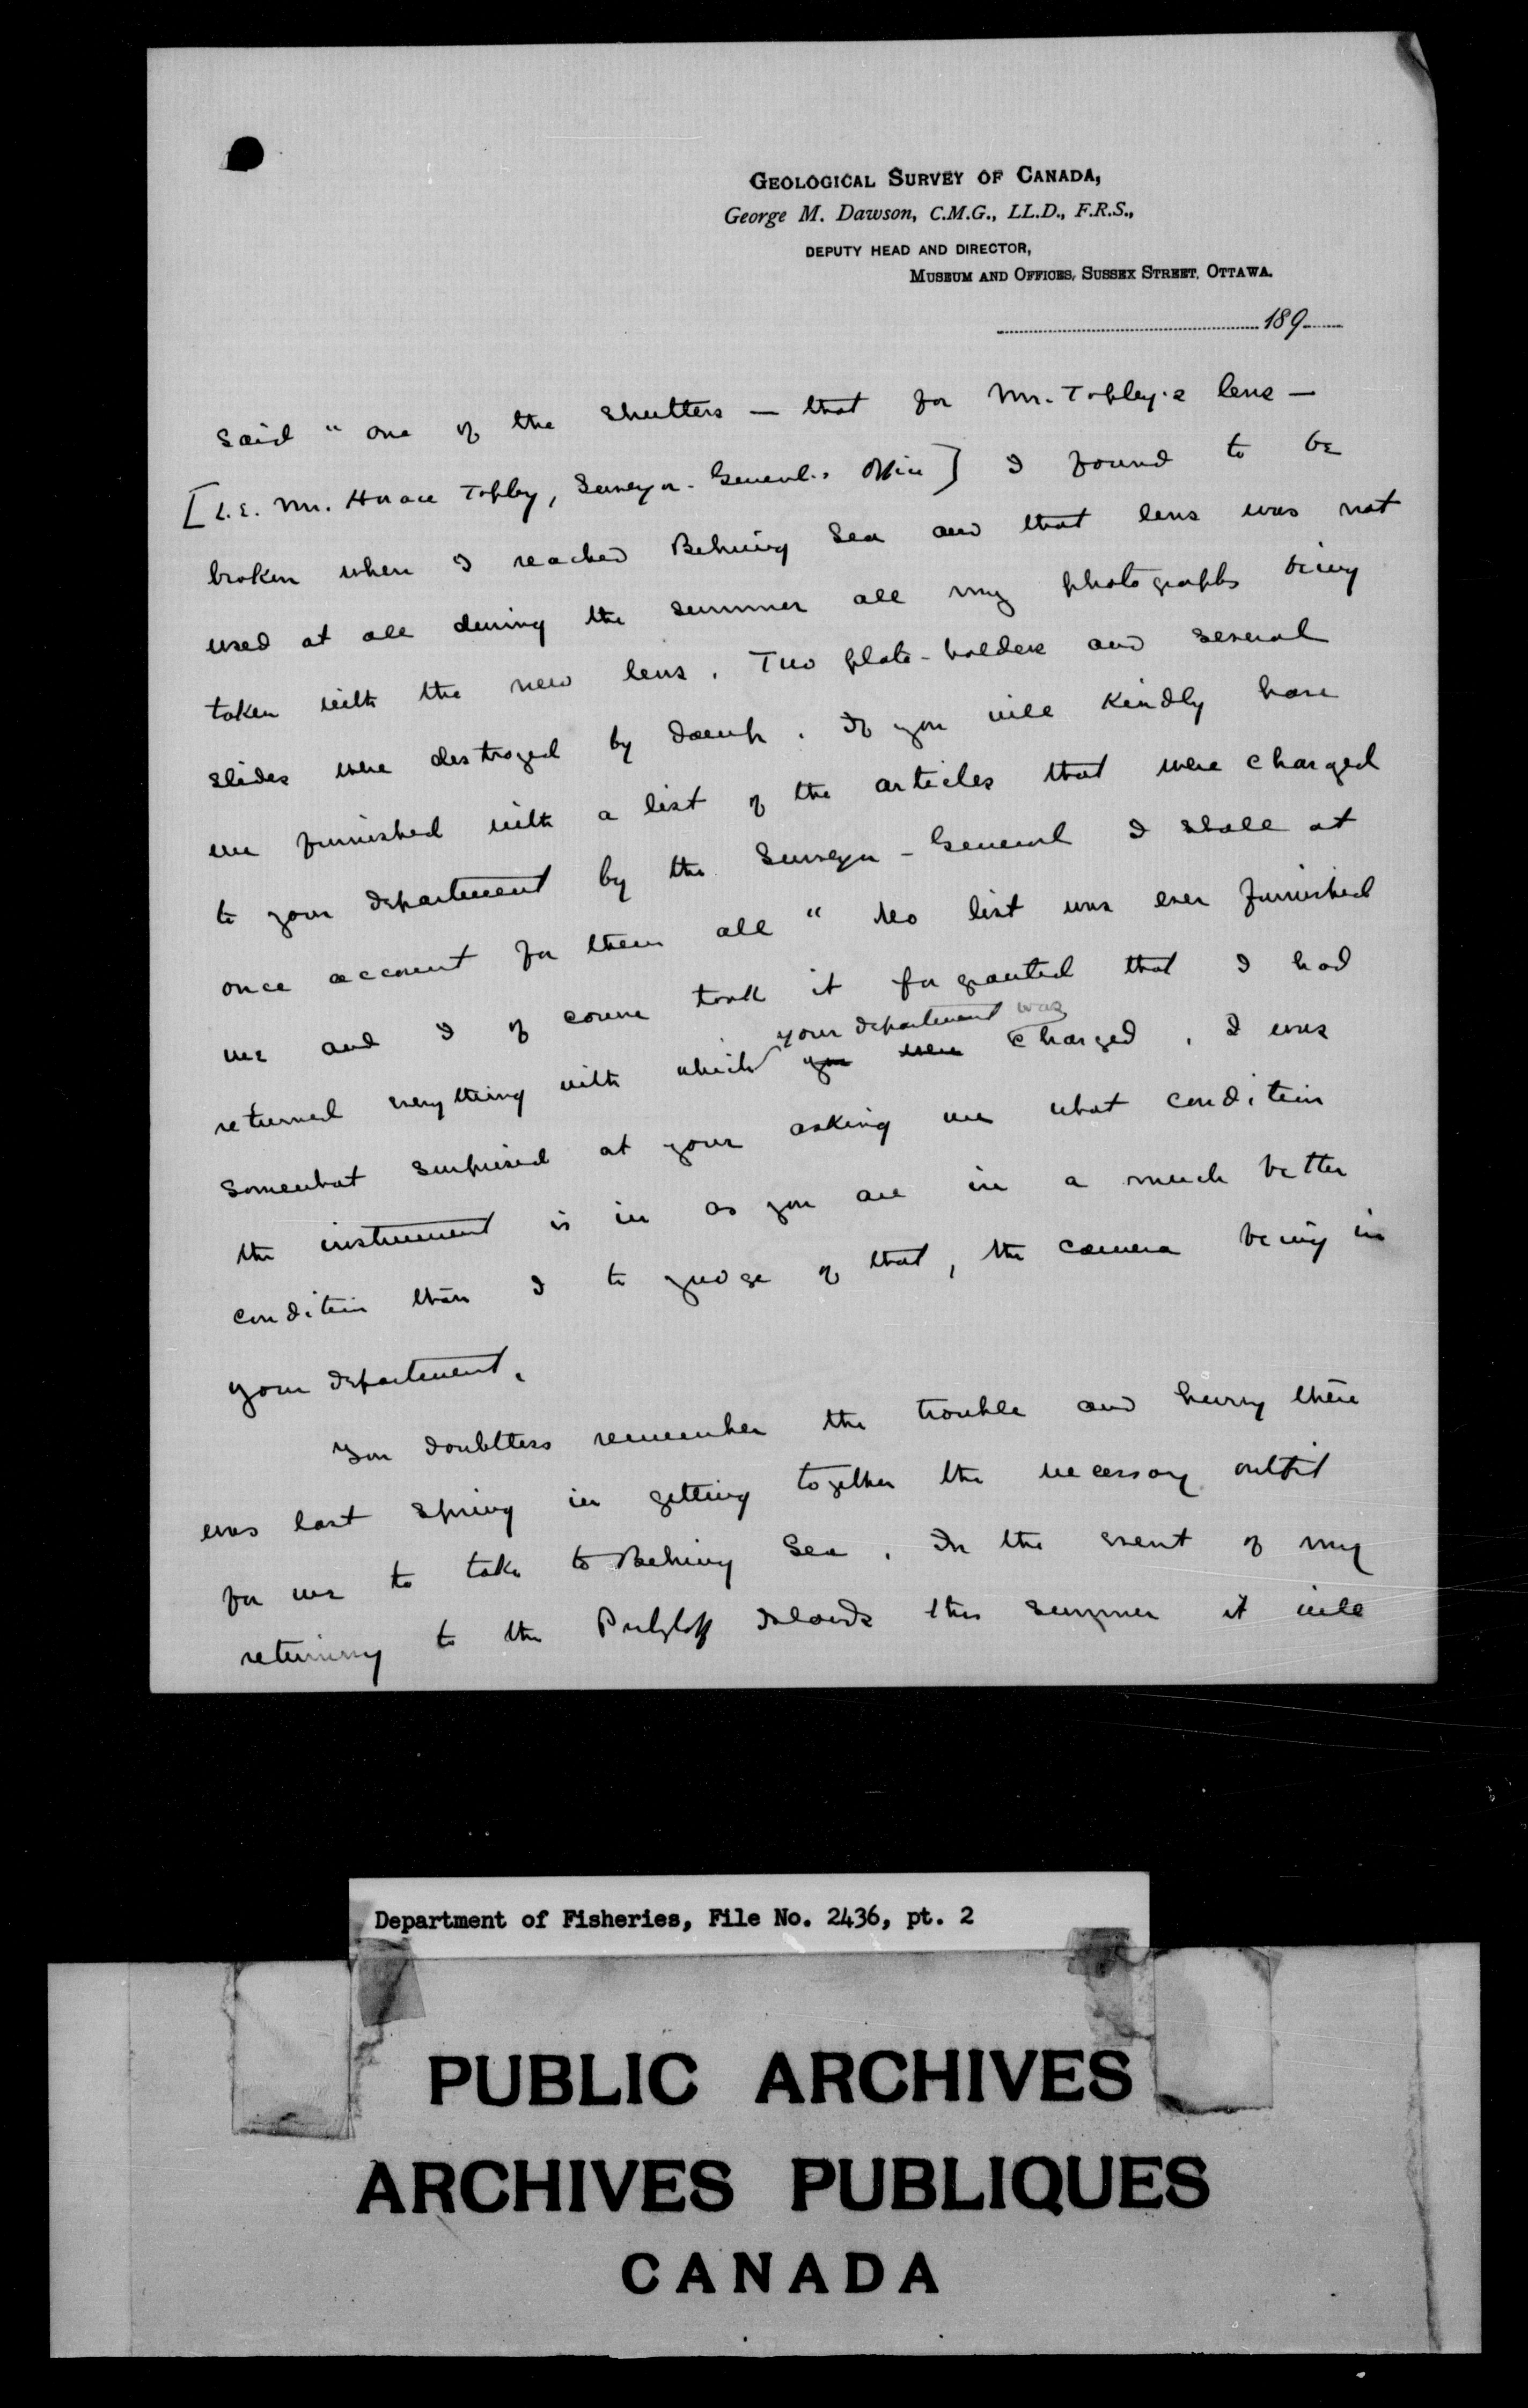 GEOLOGICAL SURVEY OF CANADA,
George M. Dawson, C.M.G., LL.D., F.R.S.,
DEPUTY HEAD AND DIRECTOR,
MUSEUM AND OFFICES, SUSSEX STREET, OTTAWA.
189
said " one of the shutters — that for Mr. Topley's lens —
[I.E. Mr. Horace Topley, Surveyor-General's Office] I found to be
broken when I reached Behring Sea and that lens was not
used at all during the summer all my photographs being
taken with the new lens. Two plate-holders and several
slides were destroyed by damp. If you will kindly have
me furnished with a list of the articles that were charged
to your department by the Surveyor-General I shall at
once account for them all " No list was ever furnished
me and I of course took it for granted that I had
your department was
returned everything with which you were charged. I was
somewhat surprised at your asking me what condition
the instrument is in as you are in a much better
condition than I to judge of that, the camera being in
your department.
You doubtless remember the trouble and hurry there
was last spring in getting together the necessary outfit
for me to take to Behring Sea. In the event of my
returning to the Pribyloff Islands this summer it will
Department of Fisheries, File No. 2436, pt. 2
PUBLIC ARCHIVES
ARCHIVES PUBLIQUES
CANADA